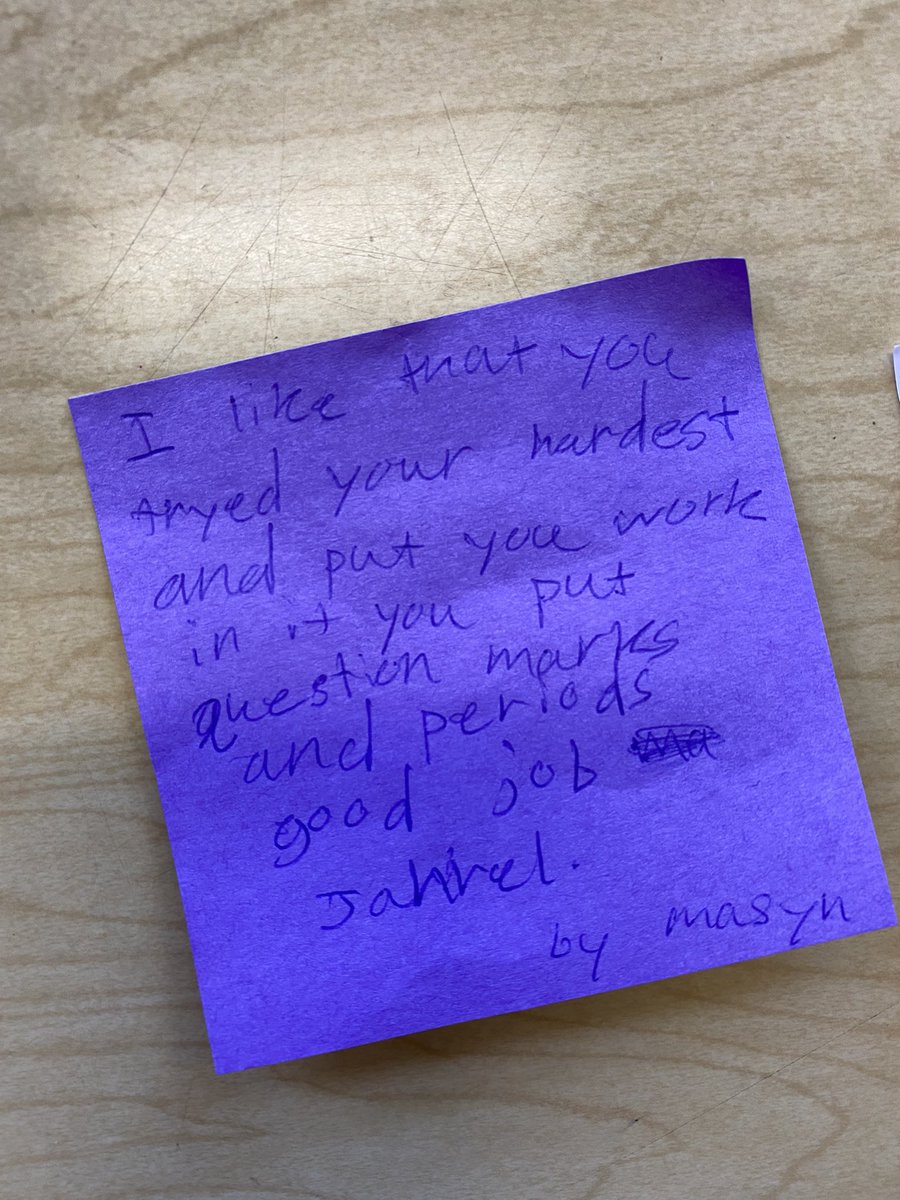 I like that you
tryed your hardest
and put you work
in it you put
question marks
and periods
good job
by masyn